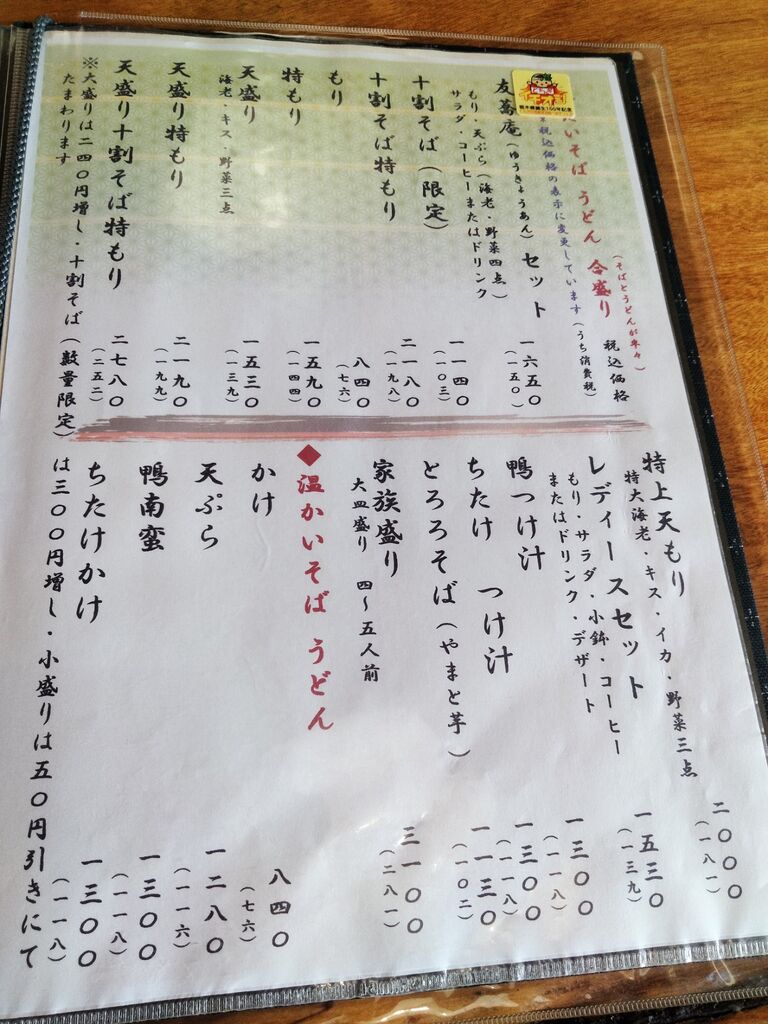 たいそば うどん 合盛り
(そばとうどんが半々)
税込価格
税込価格の表示に変更しています
(うち消費税)
友蕎庵(ゆうきょうあん)セット
もり・天ぷら(海老・野菜四点)
サラダ・コーヒーまたはドリンク
一六五〇
(一五〇)
十割そば(限定)
一一四〇
(一〇三)
十割そば特もり
二一八〇
(一九八)
もり
八四〇
(七六)
特もり
一五九〇
(一四四)
天盛り
海老・キス・野菜三点
一五三〇
(一三九)
天盛り特もり
二一九〇
(一九九)
天盛り十割そば特もり
二七八〇
(二五二)
特上天もり
特大海老・キス・イカ・野菜三点
二〇〇〇
(一八一)
レディースセット
もり・サラダ・小鉢・コーヒー
またはドリンク・デザート
一五三〇
(一三九)
鴨つけ汁
一三〇〇
(一一八)
ちたけ つけ汁
一三〇〇
(一一八)
とろろそば(やまと芋)
一一三〇
(一〇二)
家族盛り
大皿盛り 四~五人前
三一〇〇
(二八一)
◆温かいそば うどん
かけ
八四〇
(七六)
天ぷら
一二八〇
(一一六)
鴨南蛮
一三〇〇
(一一八)
ちたけかけ
一三〇〇
(一一八)
※大盛りは二四〇円増し・十割そば(数量限定)は三〇〇円増し・小盛りは五〇円引きにて
たまわります